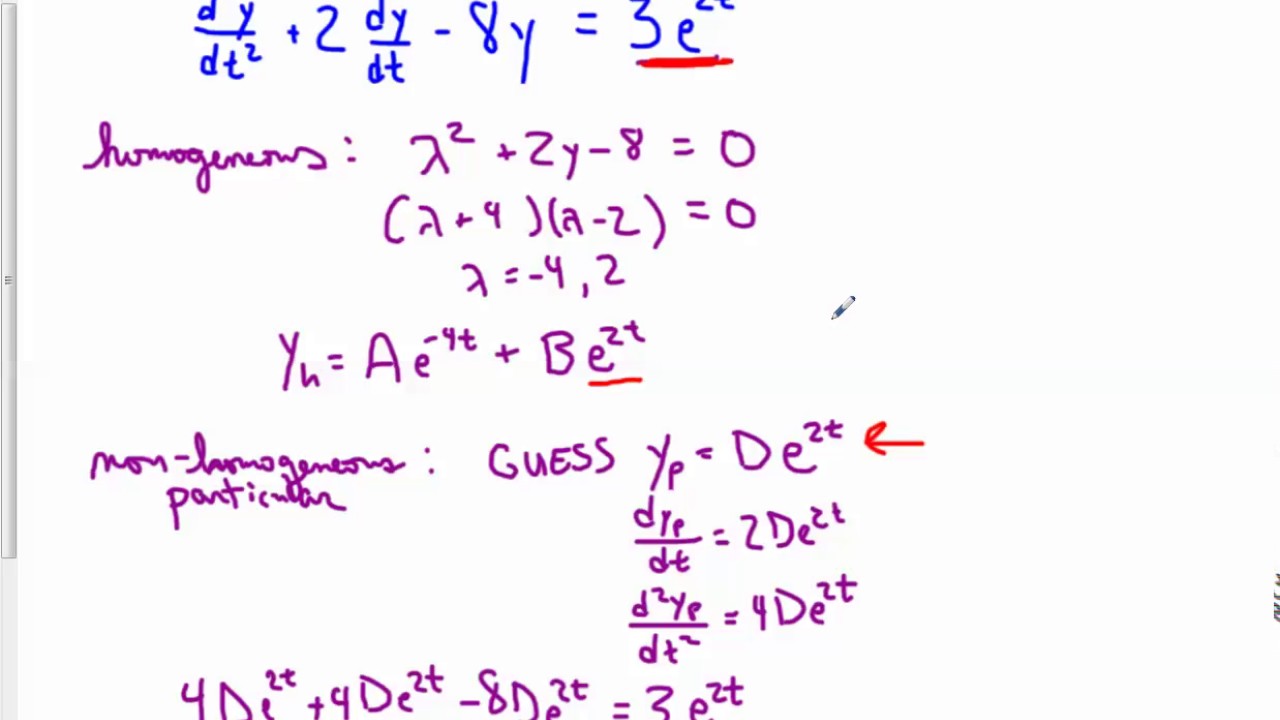 dy/dt² + 2 dy/dt - 8y = 3e^2t
homogeneous: λ² + 2y - 8 = 0
(λ + 4)(λ - 2) = 0
λ = -4, 2
y_h = Ae^-4t + Be^2t
non-homogeneous: GUESS y_p = De^2t
particular
dy_p/dt = 2De^2t
d²y_p/dt² = 4De^2t
4De^2t + 4De^2t - 8De^2t = 3e^2t